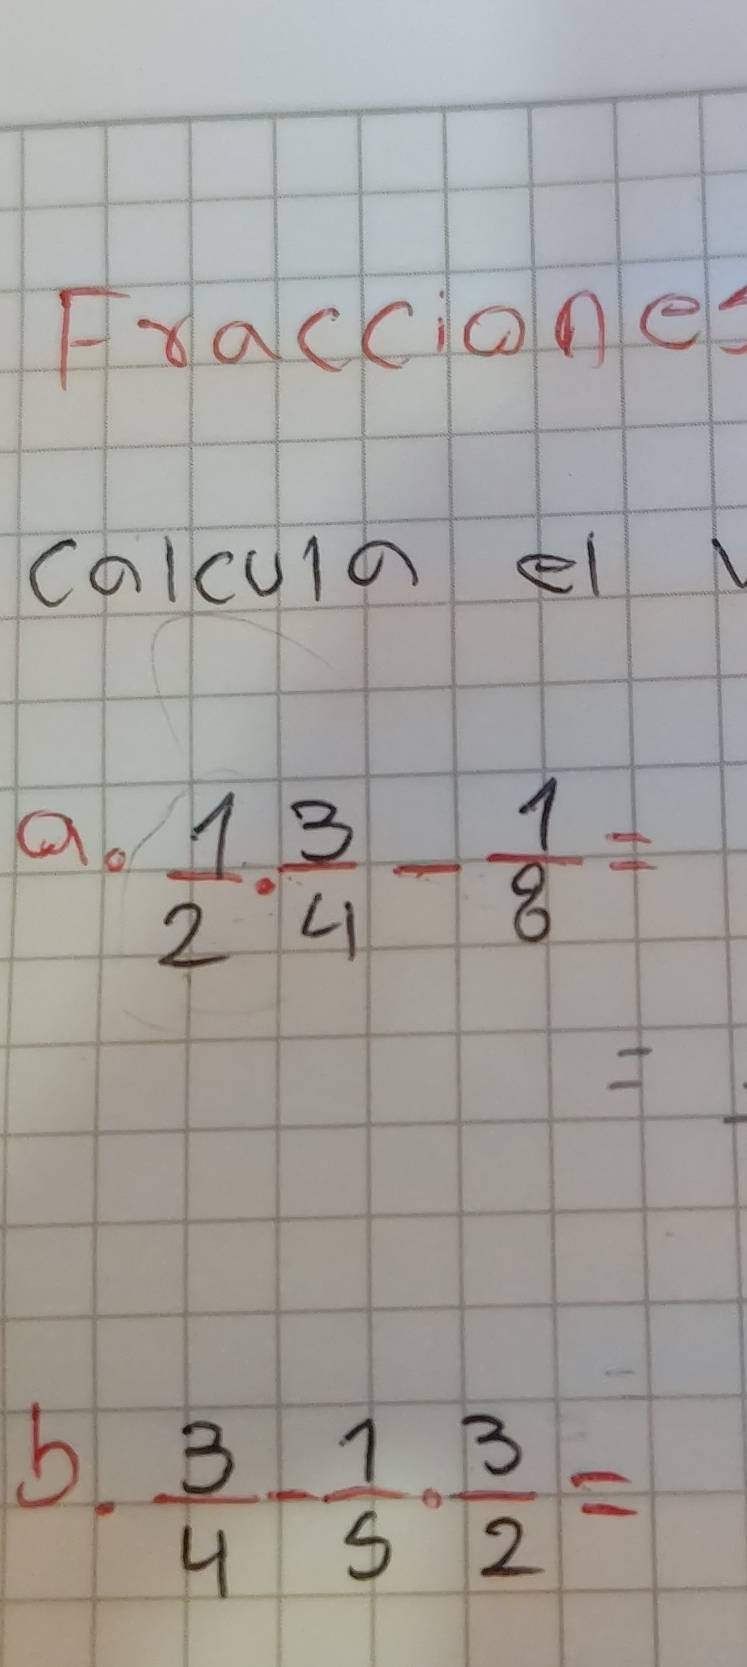 Fracciones
Calcula el
a. 1/2 · 3/4 - 1/8 =
=
b. 3/4 - 1/5 · 3/2 =